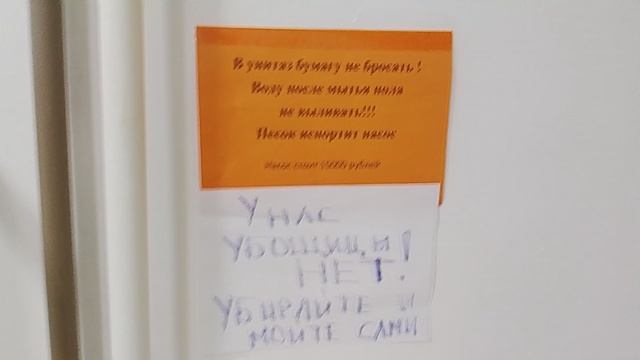 В унитаз бумагу не бросать !
Воду после мытья пола
не выливать!!!
Песок испортит насос
Насос стоит 15000 рублей
У НАС
УБОЩИЦЫ
НЕТ!
УБИРАЙТЕ И
МОЙТЕ САМИ